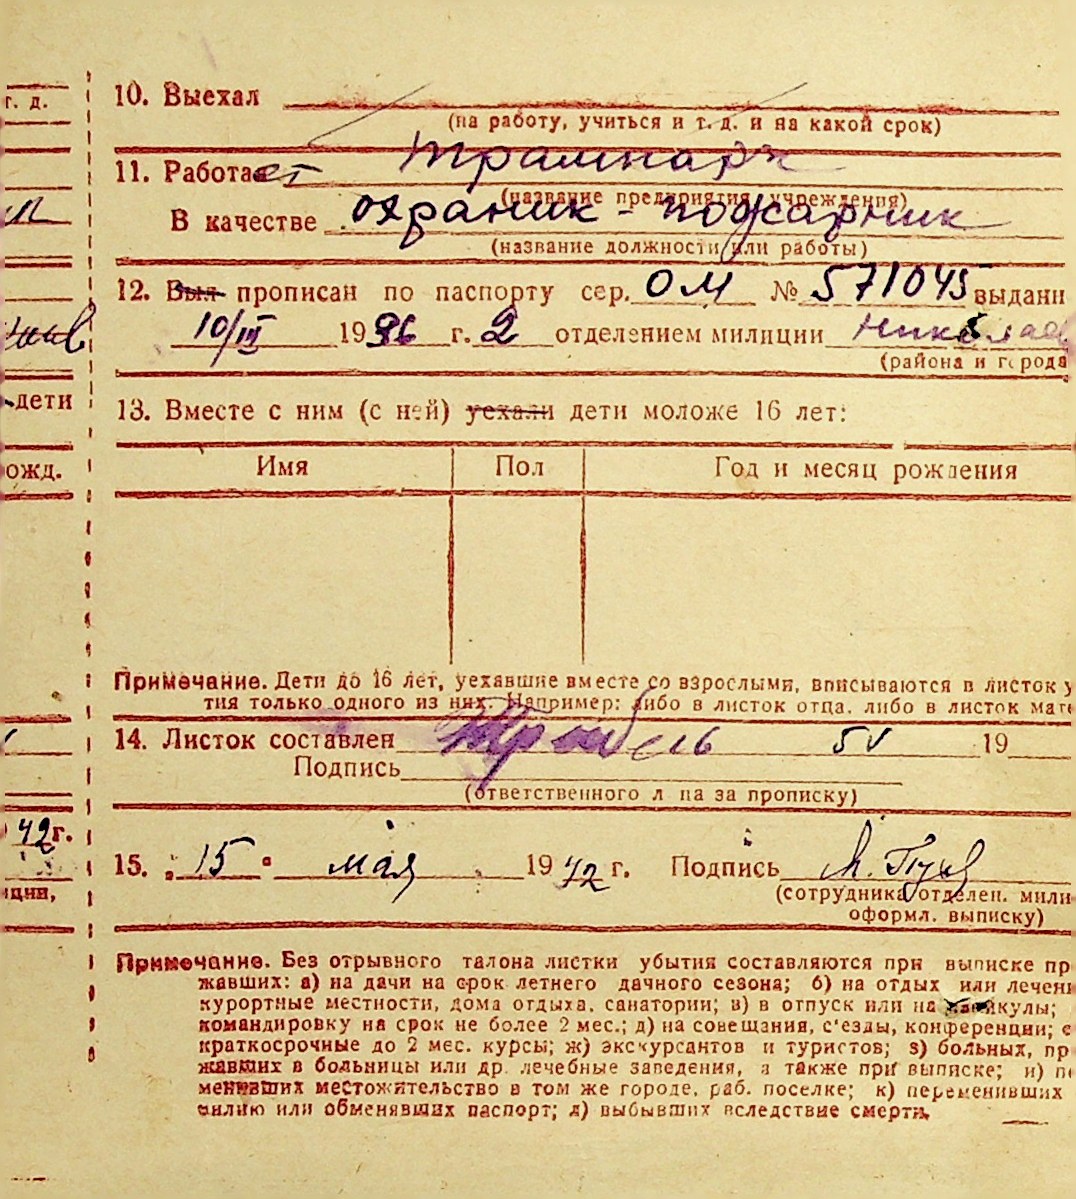 г. д.
10. Выехал
(на работу, учиться и т. д. и на какой срок)
11. Работает трампарк
(название предприятия, учреждения)
В качестве охраник - пожарник
(название должности или работы)
12. Был прописан по паспорту сер. ОМ № 571045 выдани
10/III 19 г. 2 отделением милиции Николаев
(района и города
дети
13. Вместе с ним (с ней) уехали дети моложе 16 лет:
ожд.
Имя Пол Год и месяц рождения
Примечание. Дети до 16 лет, уехавшие вместе со взрослыми, вписываются в листок у
тия только одного из них. Например: либо в листок отца, либо в листок мате
14. Листок составлен 19
Подпись
(ответственного лица за прописку)
42 г.
15. „15“ мая 1942 г. Подпись
ции,
(сотрудника отделен. мили
оформл. выписку)
Примечание. Без отрывного талона листки убытия составляются при выписке пр
жавших: а) на дачи на срок летнего дачного сезона; б) на отдых или лечени
курортные местности, дома отдыха, санатории; в) в отпуск или на каникулы;
командировку на срок не более 2 мес.; д) на совещания, с'езды, конференции; е
краткосрочные до 2 мес. курсы; ж) экскурсантов и туристов; з) больных, пр
жавших в больницы или др. лечебные заведения, а также при выписке; и) пе
менивших местожительство в том же городе, раб. поселке; к) переменивших
милию или обменявших паспорт; л) выбывших вследствие смерти.